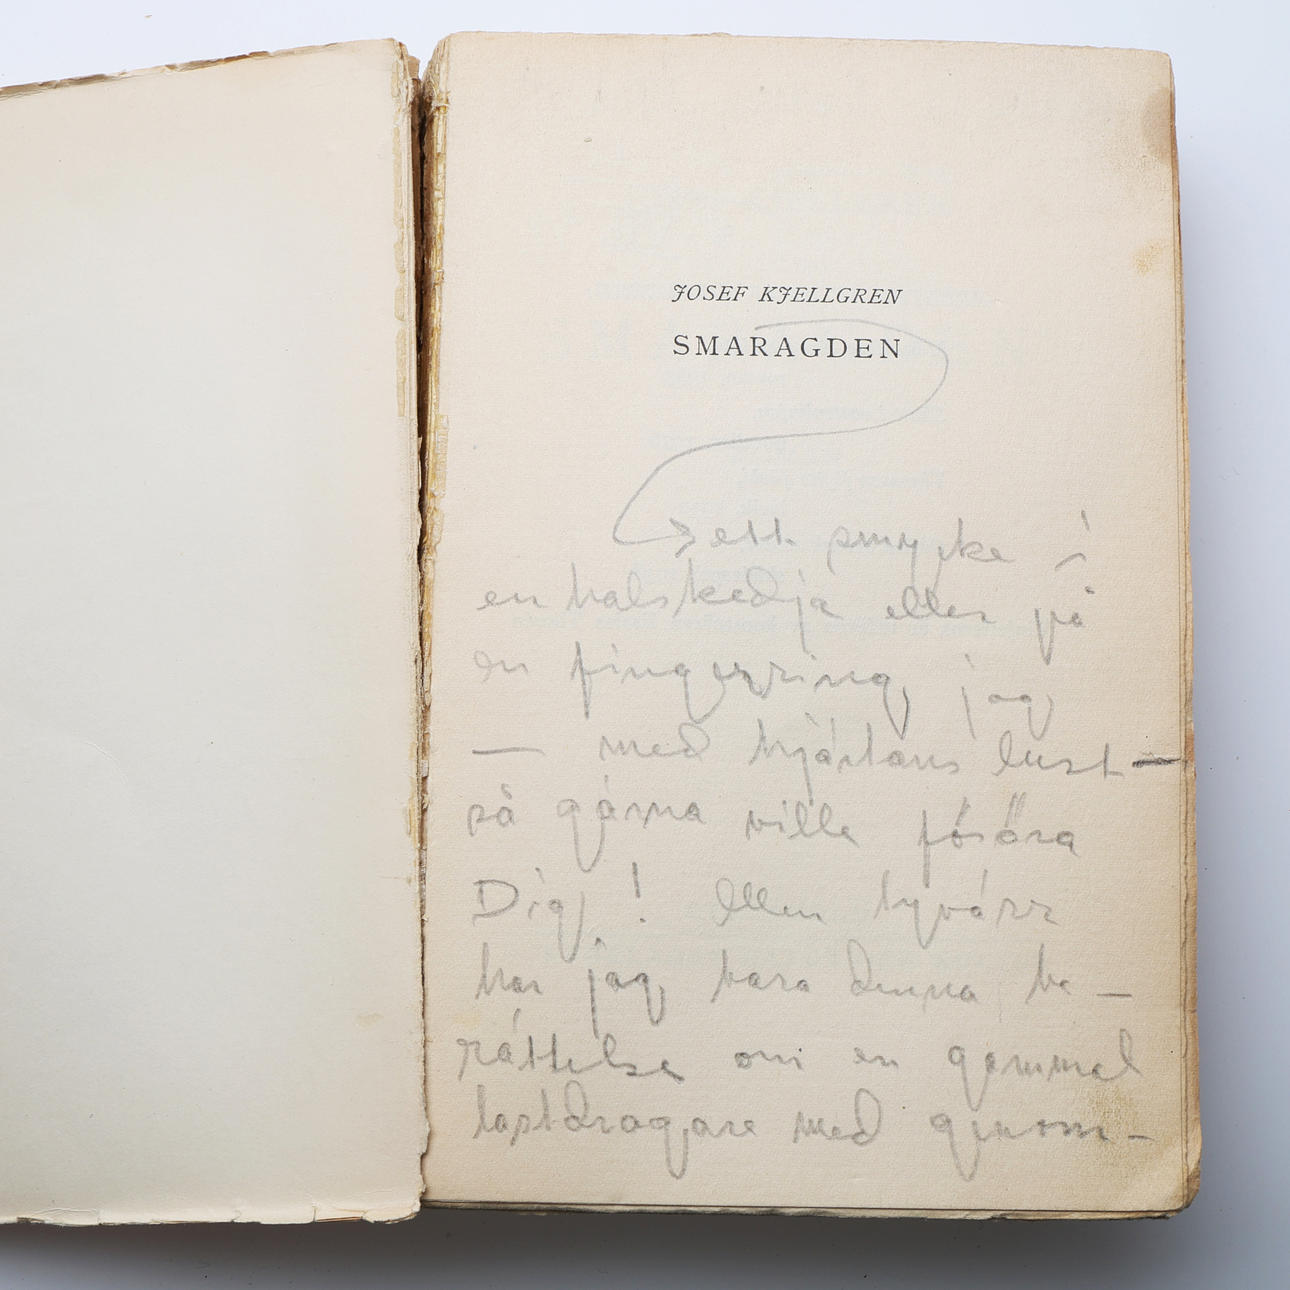 JOSEF KJELLGREN
SMARAGDEN
ett smycke i
en halskedja eller på
en fingerring, jag
— med hjärtans lust —
så gärna ville föröra
Dig! Men tyvärr
har jag bara denna be—
rättelse om en gammal
lastdragare med genom—